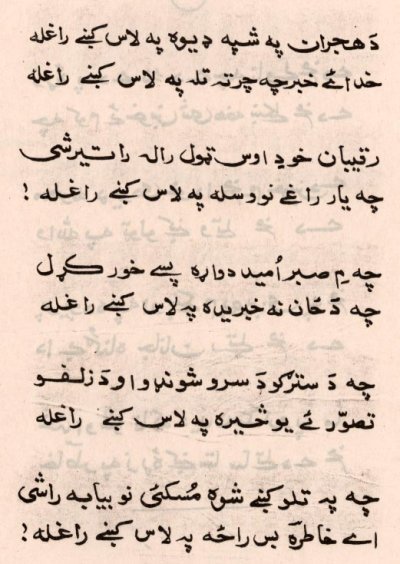 دَ هجران په شپه ډيوه په لاس کښے راغله
خدائے خبر چه چرته تله په لاس کښے راغله
رقيبان خود اوس ټول راله راتيرشى
چه يار راغے نو وسله په لاس کښے راغله !
چه مِ صبر اُميد دواړه پسے خور کړل
چه دَ ځان نه خبريده په لاس کښے راغله
چه دَ سترګو دَ سرو شونډو او دَ زلفو
تصوّر ئے يو څيره په لاس کښے راغله
چه په تلو کښے شوه مُسکئ نو بيا به راشى
اے خاطره بس راځه په لاس کښے راغله !